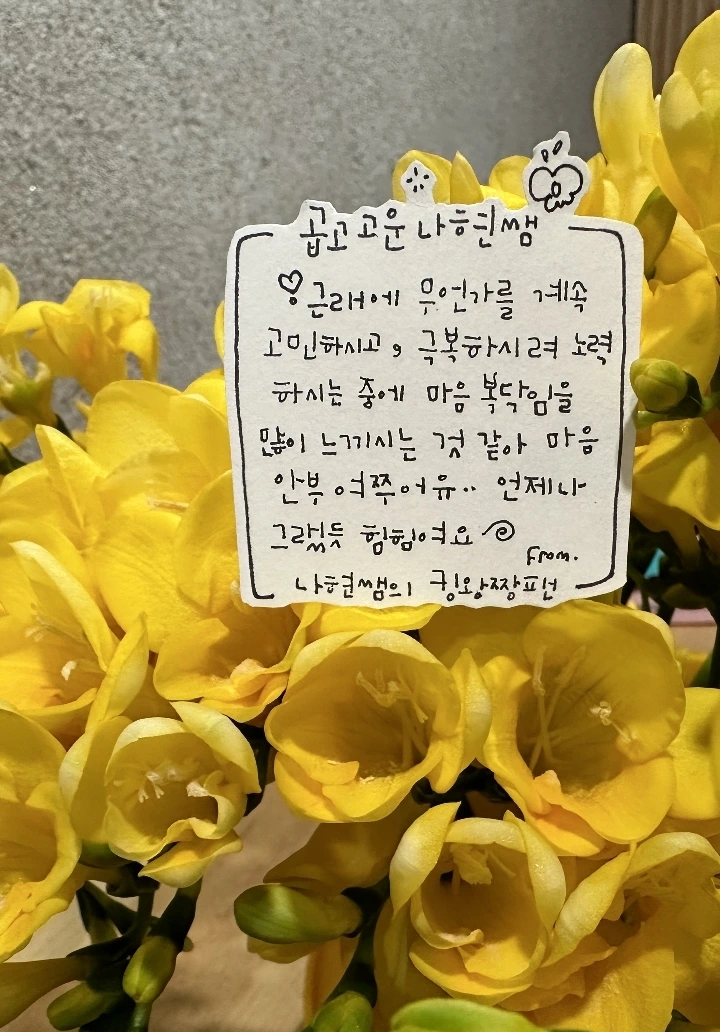 곱고 고운 나현쌤
♡ 근래에 무언가를 계속
고민하시고, 극복하시려 노력
하시는 중에 마음 복닥임을
많이 느끼시는 것 같아 마음
안부 여쭈어유.. 언제나
그랬듯 힘힘여요
From.
나현쌤의 킹왕짱팬